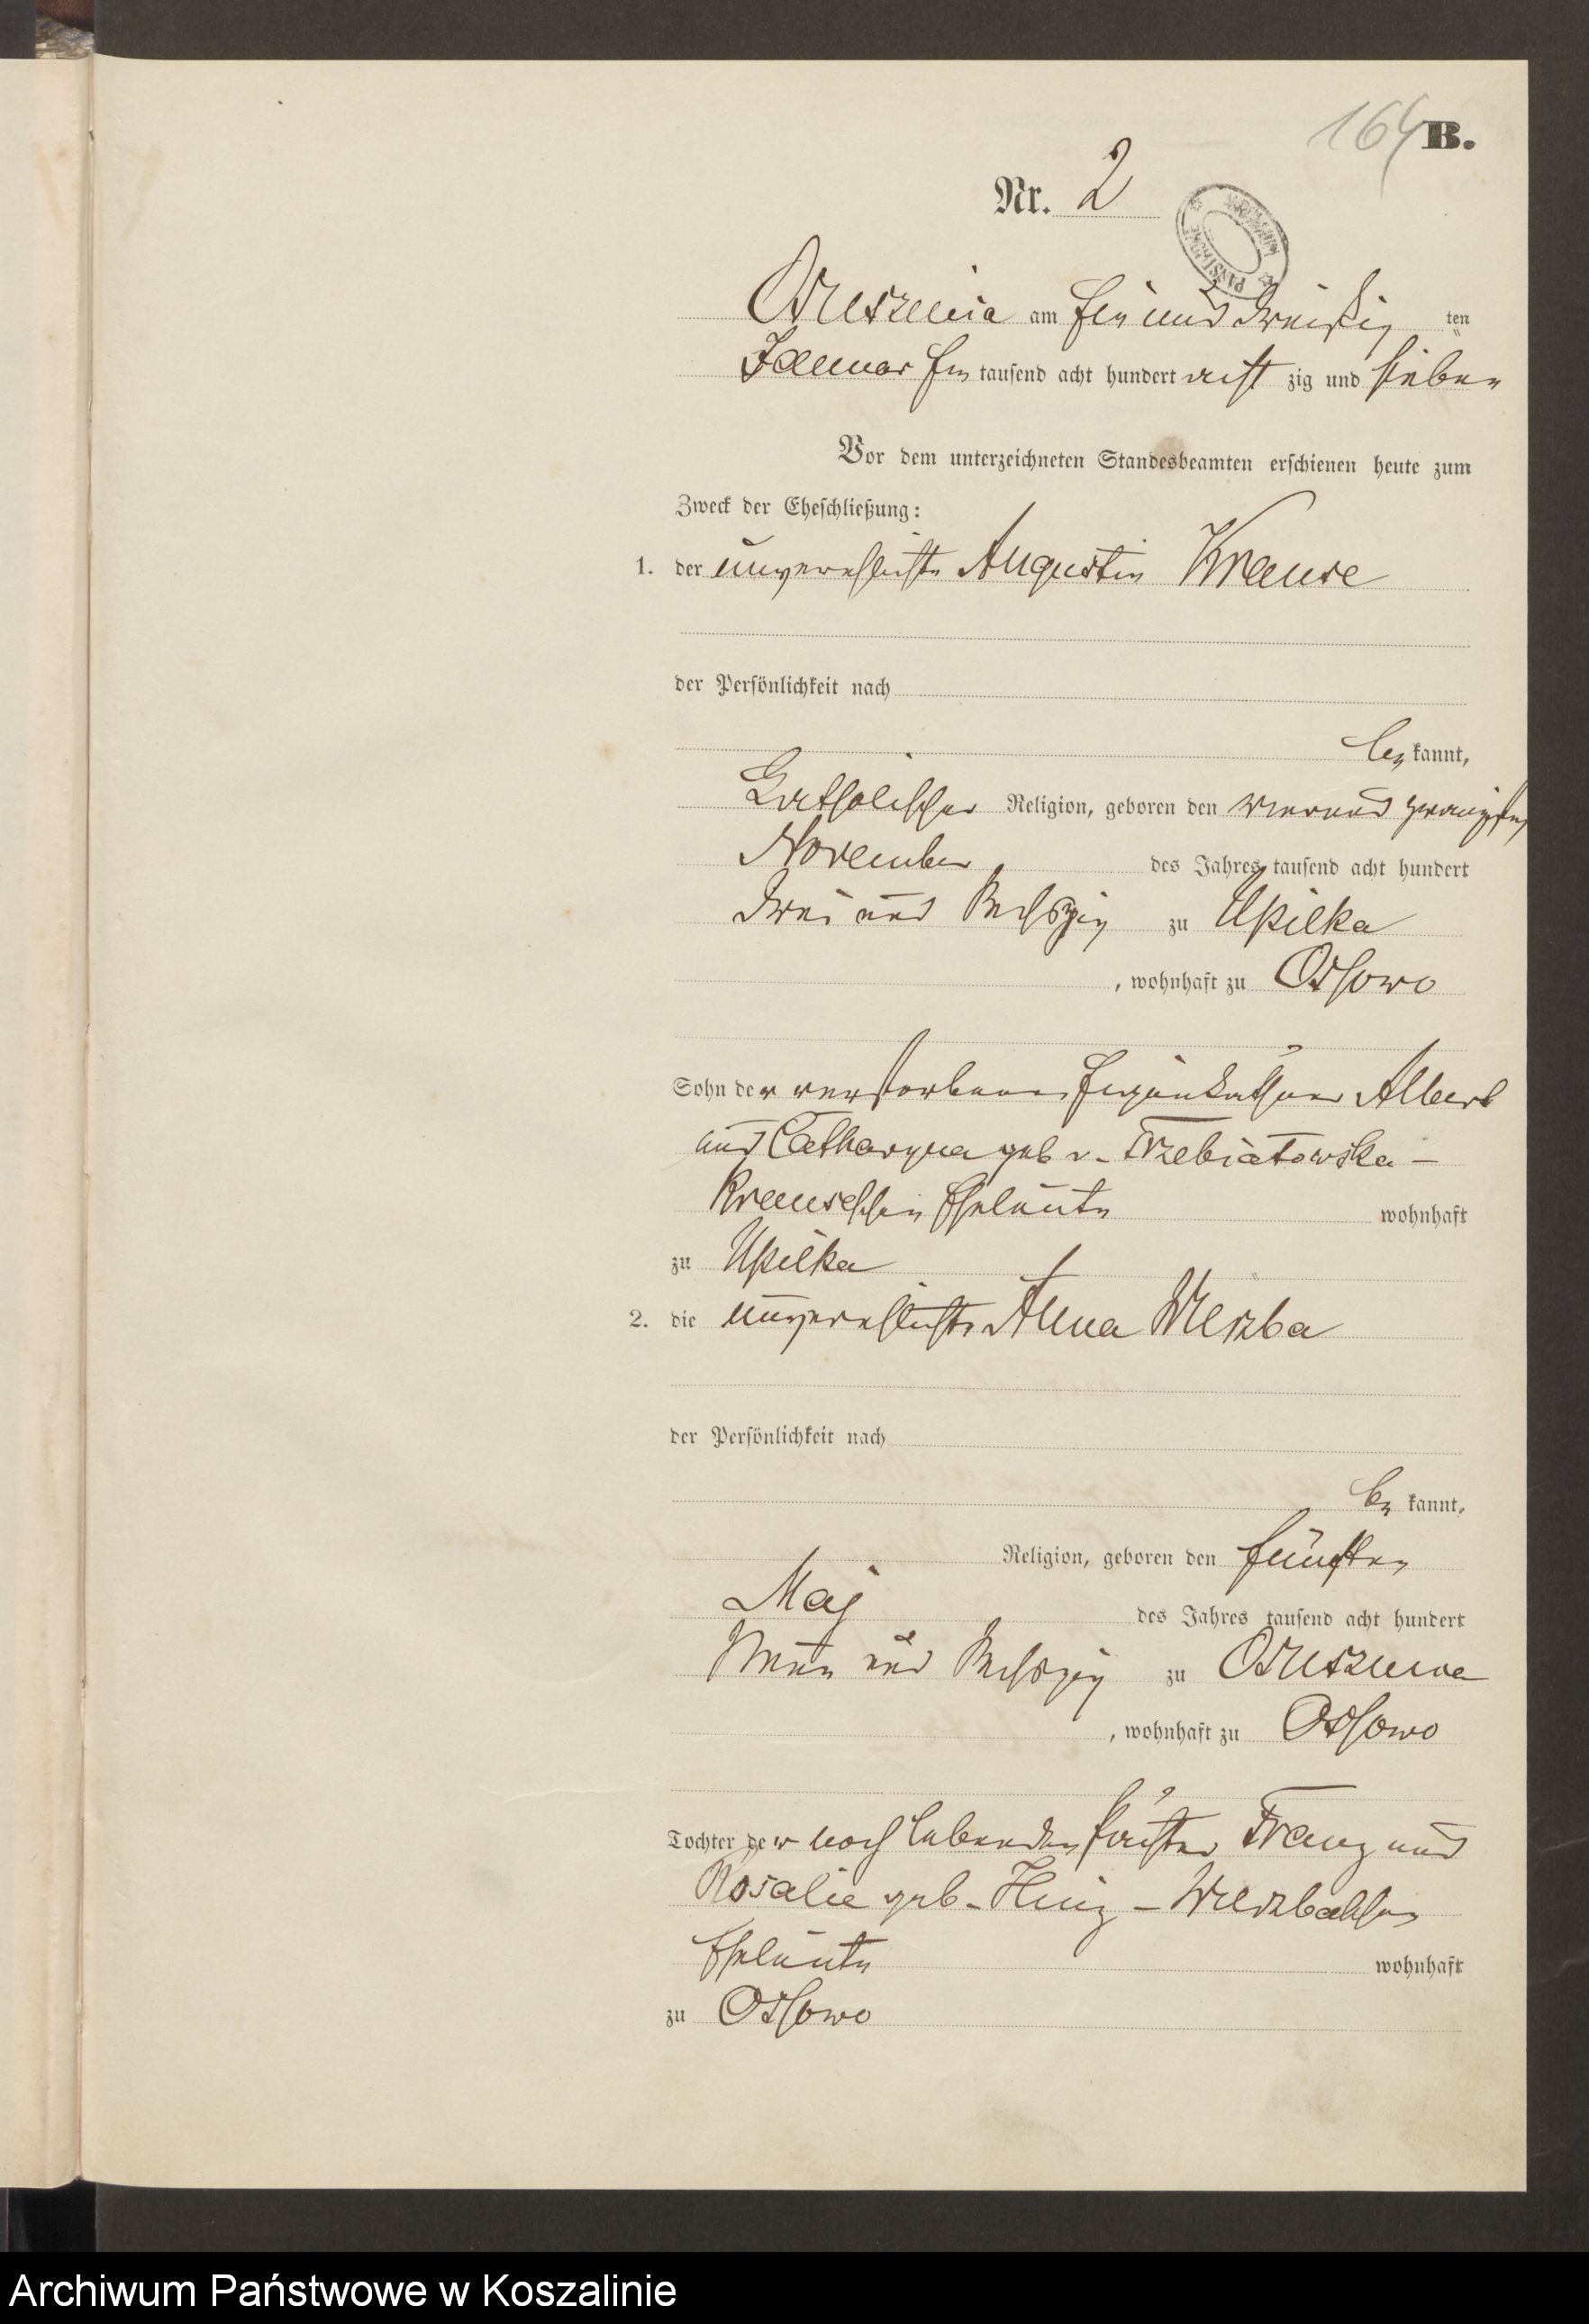 164 B.
Nr. 2
Oslusczewia am Ein und dreißig ten
Januar Ein tausend acht hundert acht zig und sieben
Vor dem unterzeichneten Standesbeamten erschienen heute zum
Zweck der Eheschließung:
1. der unverehelichte Augustin Krause
der Persönlichkeit nach
be kannt,
Katholischer Religion, geboren den vierund zwanzigsten
November des Jahres tausend acht hundert
drei und sechszig zu Upilka
, wohnhaft zu Ossowo
Sohn der verstorbenen Eigenkäthner Albert
und Catharyna geb v. Trzebiatowska -
Krauseschen Eheleute wohnhaft
zu Upilka
2. die unverehelichte Anna Wierzba
der Persönlichkeit nach
be kannt,
Religion, geboren den fünften
Maj des Jahres tausend acht hundert
Neun und sechszig zu
, wohnhaft zu Ossowo
Tochter der noch lebenden Franz und
Rosalie geb. Hinz - Wierzbaschen
Eheleute wohnhaft
zu Ossowo
Archiwum Państwowe w Koszalinie